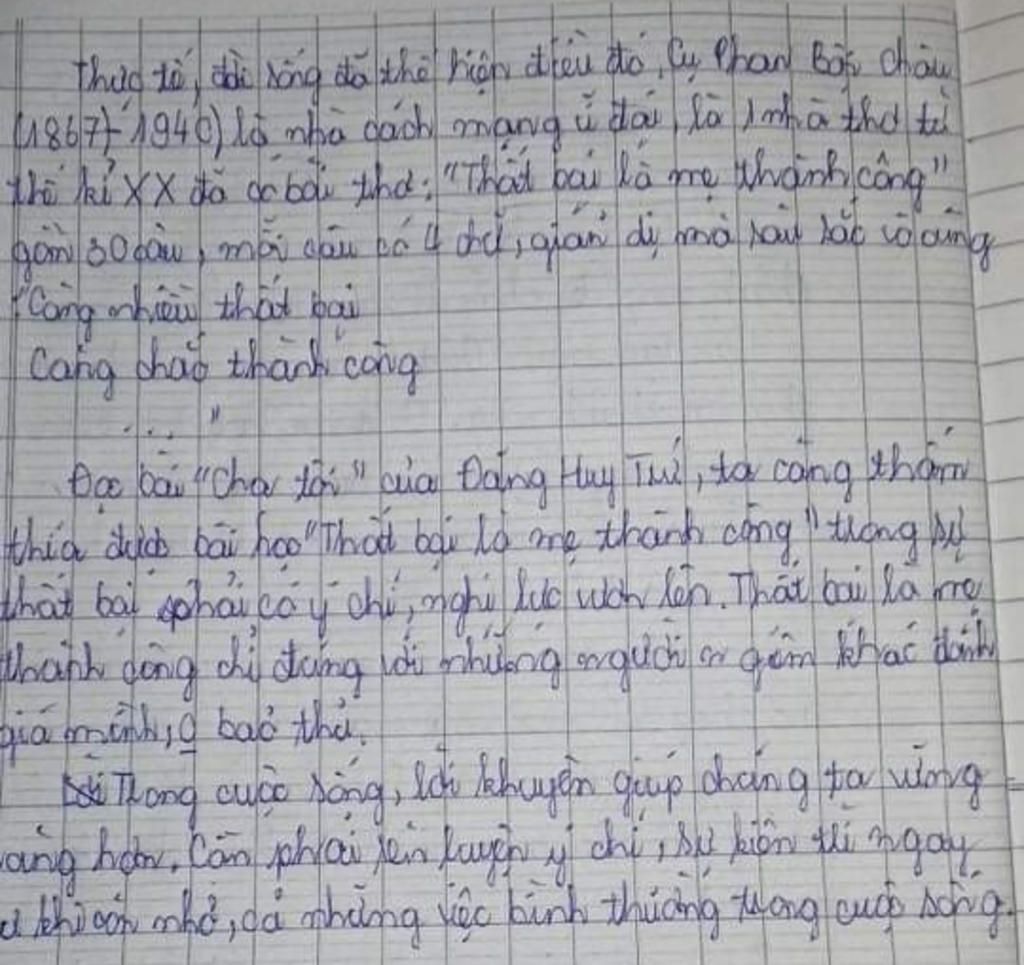 Thực tế, đời sống đã thể hiện điều đó, Cụ Phan Bội Châu
(1867-1940) là nhà cách mạng vĩ đại, là 1 nhà thơ từ
thế kỉ XX đã có bài thơ: "Thất bại là mẹ thành công"
gồm 30 câu, mỗi câu có 4 chữ, giản dị mà sâu sắc vô cùng
"Càng nhiều thất bại
Càng chắc thành công
... "
Đọc bài "Cha tôi" của Đặng Huy Trứ, ta càng thấm
thía được bài học "Thất bại là mẹ thành công" trong sự
thất bại phải có ý chí, nghị lực vươn lên. Thất bại là mẹ
thành công chỉ đúng với những người n gắm khác đánh
giá mình, o bảo thủ.
Trong cuộc sống, lời khuyên giúp chúng ta vững
vàng hơn. Cần phải rèn luyện ý chí, sự kiên trì ngay
khi còn nhỏ, cả những việc bình thường trong cuộc sống.